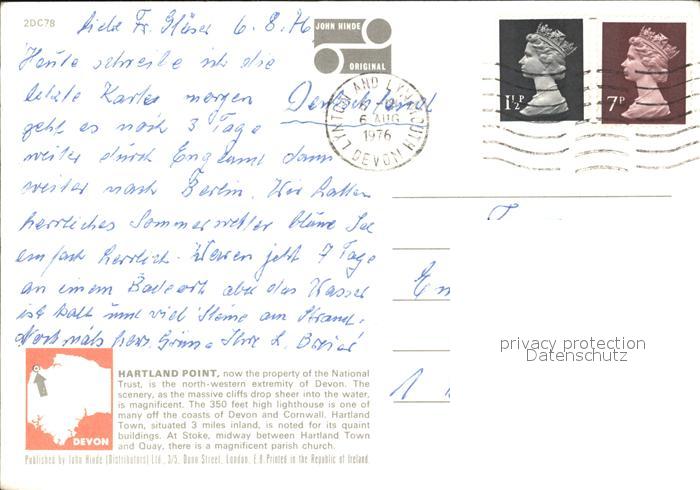 2DC78
Liebe Fr. Gläser 6.8.76
JOHN HINDE
ORIGINAL
Heute schreibe ich die
letzte Karte morgen Deutschland
geht es noch 3 Tage
weiter durch England dann
weiter nach Berlin. Wir hatten
herrliches Sommerwetter
einfach herrlich. Waren jetzt 7 Tage
an einem Badeort aber das Wasser
ist kalt und viel Steine am Strand.
Nochmals herz. Grüße Ihre L.
1½P
7P
LYNTON AND LYNMOUTH
6 AUG
1976
DEVON
privacy protection
Datenschutz
DEVON
HARTLAND POINT, now the property of the National
Trust, is the north-western extremity of Devon. The
scenery, as the massive cliffs drop sheer into the water,
is magnificent. The 350 feet high lighthouse is one of
many off the coasts of Devon and Cornwall. Hartland
Town, situated 3 miles inland, is noted for its quaint
buildings. At Stoke, midway between Hartland Town
and Quay, there is a magnificent parish church.
Published by John Hinde (Distributors) Ltd., 3/5, Dunn Street, London, E.8. Printed in the Republic of Ireland.